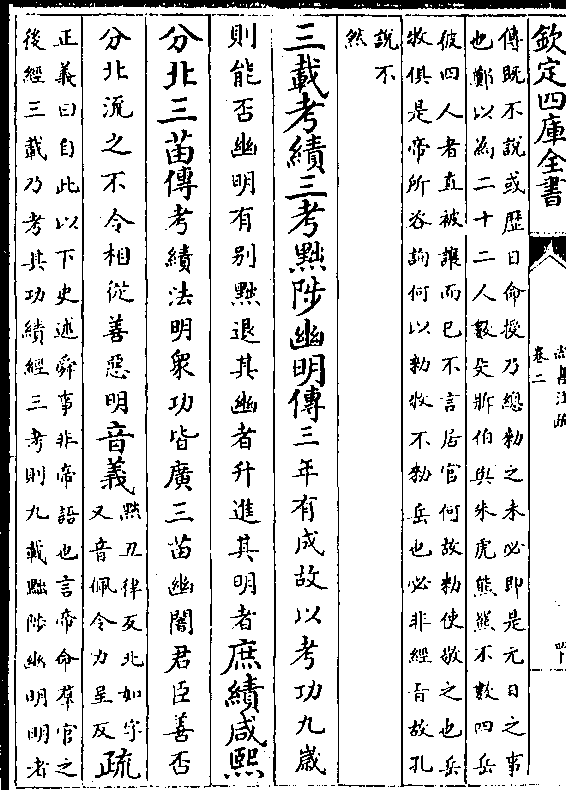 欽定四庫全書
尚書注疏
卷二
四十
傳既不說或歷日命授乃總勑之未必即是元日之事
也鄭以為二十二人數殳斨伯與朱虎熊羆不數四岳
彼四人者直被讓而已不言居官何故勑使敬之也岳
牧俱是帝所咨詢何以勑牧不勑岳也必非經旨故孔
說不
然
三載考績三考黜陟幽明傳三年有成故以考功九歲
則能否幽明有别黜退其幽者升進其明者庶績咸熙
分北三苗傳考績法明衆功皆廣三苗幽闇君臣善否
分北流之不令相從善惡明音義黜丑律反北如字又音佩令力呈反疏
正義曰自此以下史述舜事非帝語也言帝命羣官之
後經三載乃考其功績經三考則九載黜陟幽明明者